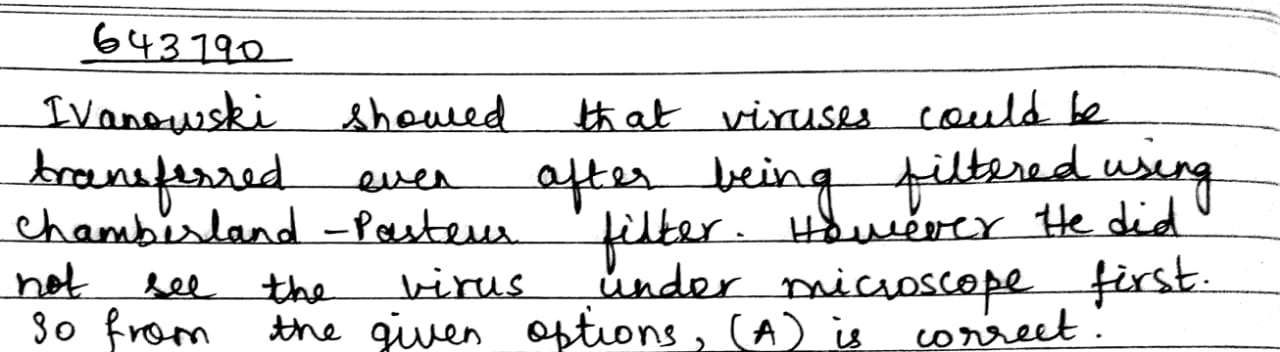 643790
IVanowski showed that viruses could be
transferred even after being filtered using
Chamberland-Pasteur filter. However He did
not see the virus under microscope first.
So from the given options, (A) is correct.